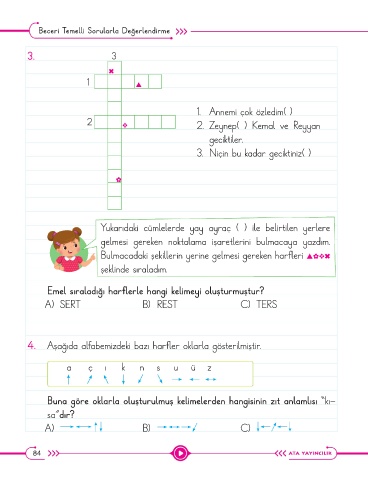 Beceri Temelli Sorularla Değerlendirme
3.
3
1
2
1. Annemi çok özledim( )
2. Zeynep( ) Kemal ve Reyyan
geciktiler.
3. Niçin bu kadar geciktiniz( )
Yukarıdaki cümlelerde yay ayraç ( ) ile belirtilen yerlere
gelmesi gereken noktalama işaretlerini bulmacaya yazdım.
Bulmacadaki şekillerin yerine gelmesi gereken harfleri
şeklinde sıraladım.
Emel sıraladığı harflerle hangi kelimeyi oluşturmuştur?
A) SERT B) REST C) TERS
4. Aşağıda alfabemizdeki bazı harfler oklarla gösterilmiştir.
a ç ı k n s u ü z
↑ ↗ ↖ ↓ ↙ ↘ → ← ↔
Buna göre oklarla oluşturulmuş kelimelerden hangisinin zıt anlamlısı "kı-
sa"dır?
A) B) C)
84
ATA YAYINCILIK